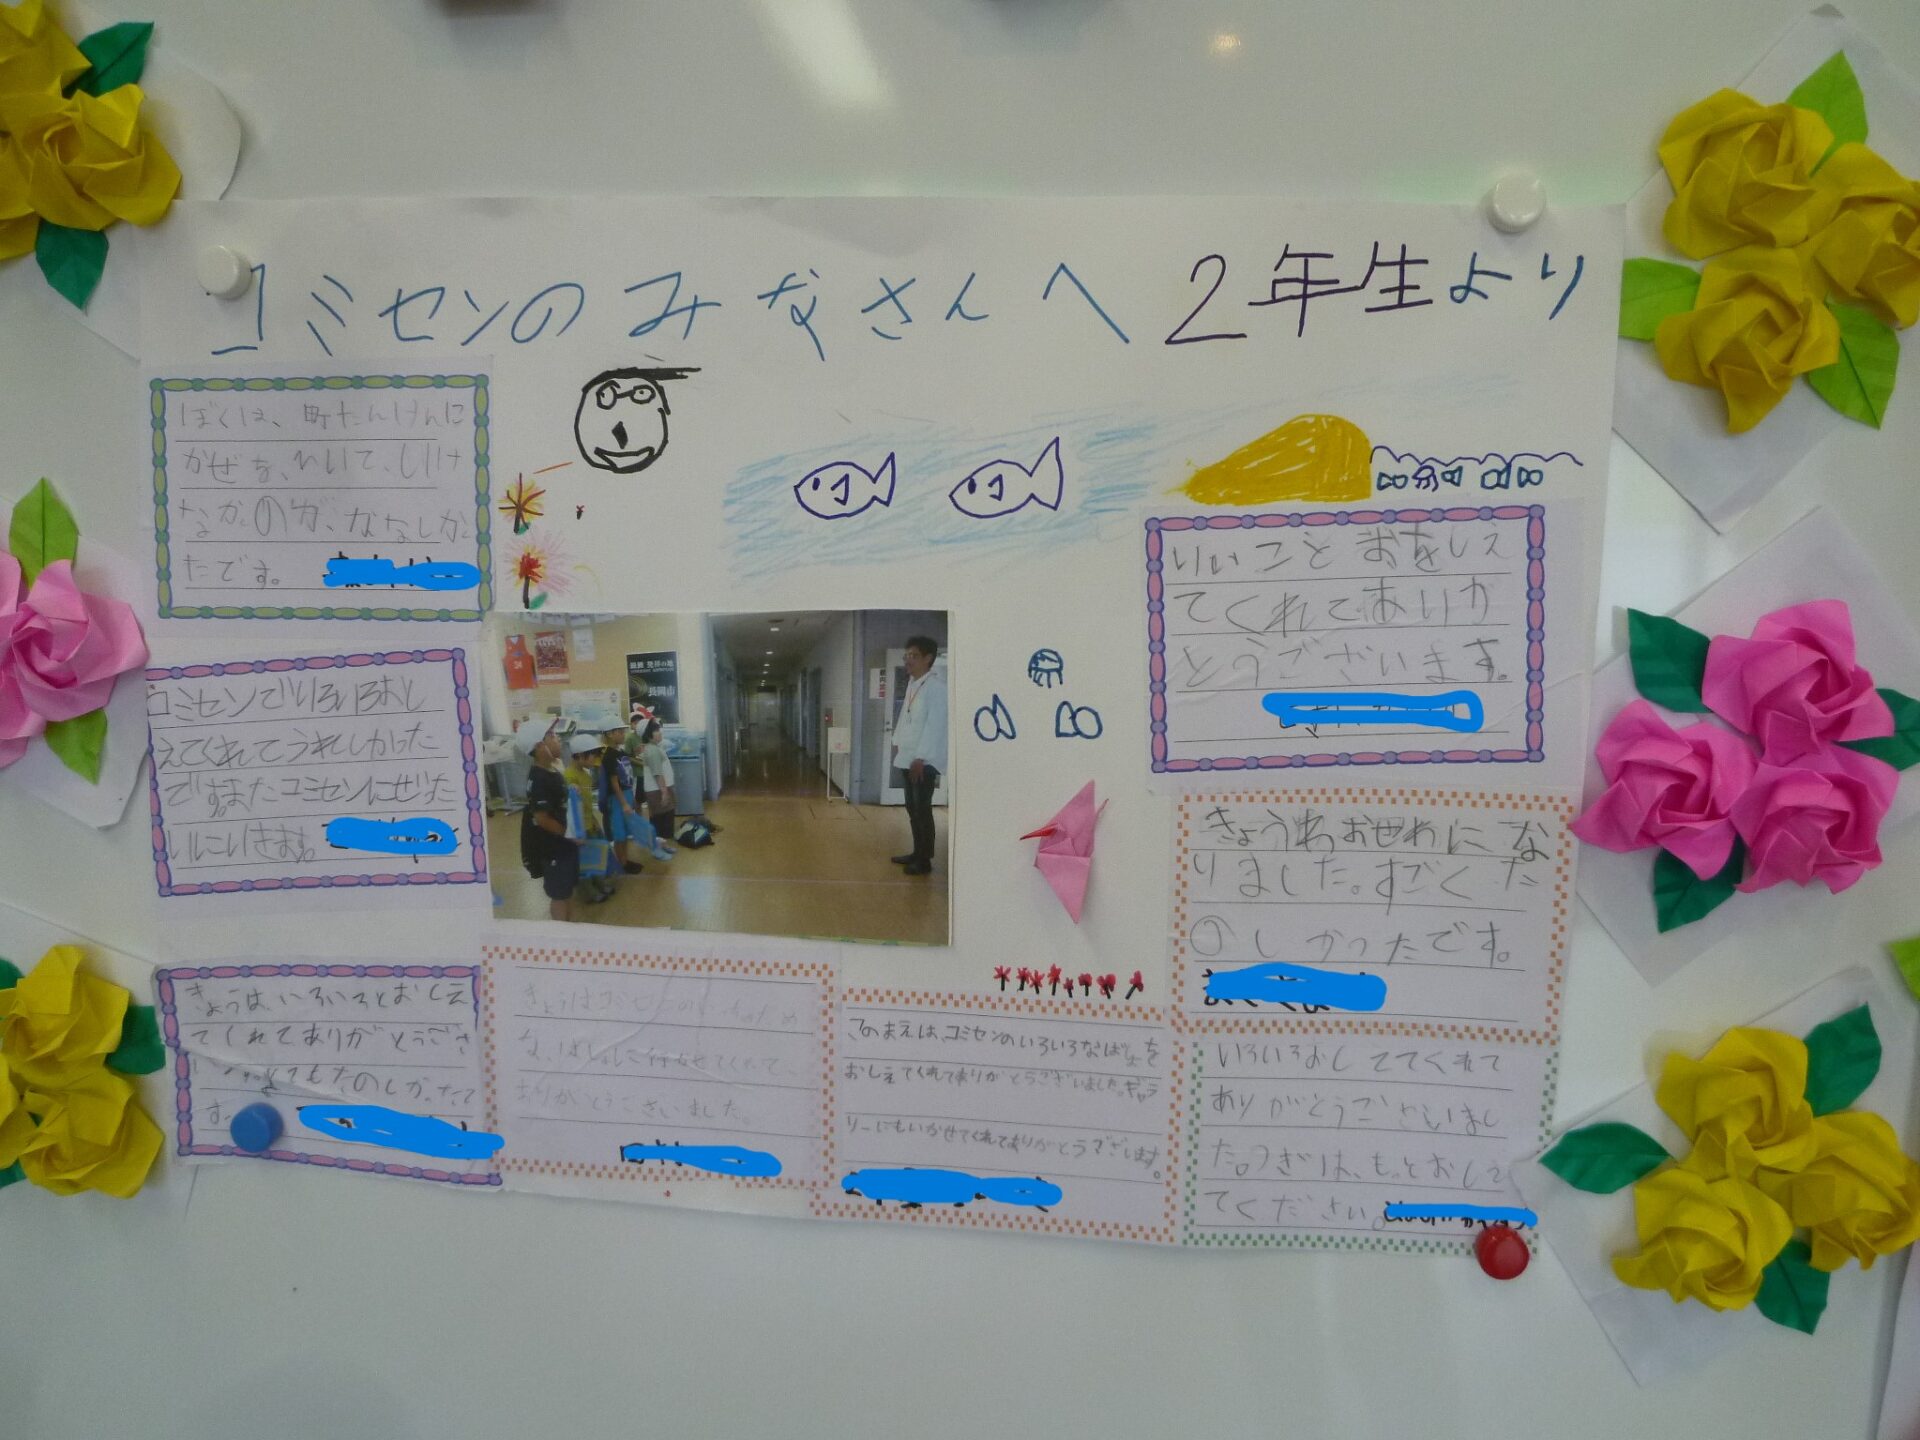 コミセンのみなさんへ 2年生より
ぼくは、町たんけんに
かぜを、ひいて、いけ
なかのが、かなしか
たです。
コミセンでいろいろおし
えてくれてうれしかった
ですまたコミセンにぜった
いにいきます。
きょうは、いろいろとおしえ
てくれてありがとうござ
とてもたのしかったで
す。
きょうはコミセンの
な、ばしょに行かせてくれて
ありがとうございました。
このまえは、コミセンのいろいろなばしょを
おしえてくれてありがとうございました。ギャラ
リーにもいかせてくれてありがとうございます。
いいことおをしえ
てくれてありか
とうございます。
きょうわおせわにな
りました。すごくた
のしかったです。
いろいろおしててくれて
ありがとうございまし
た。つぎは、もっとおしえ
てください。
長岡市